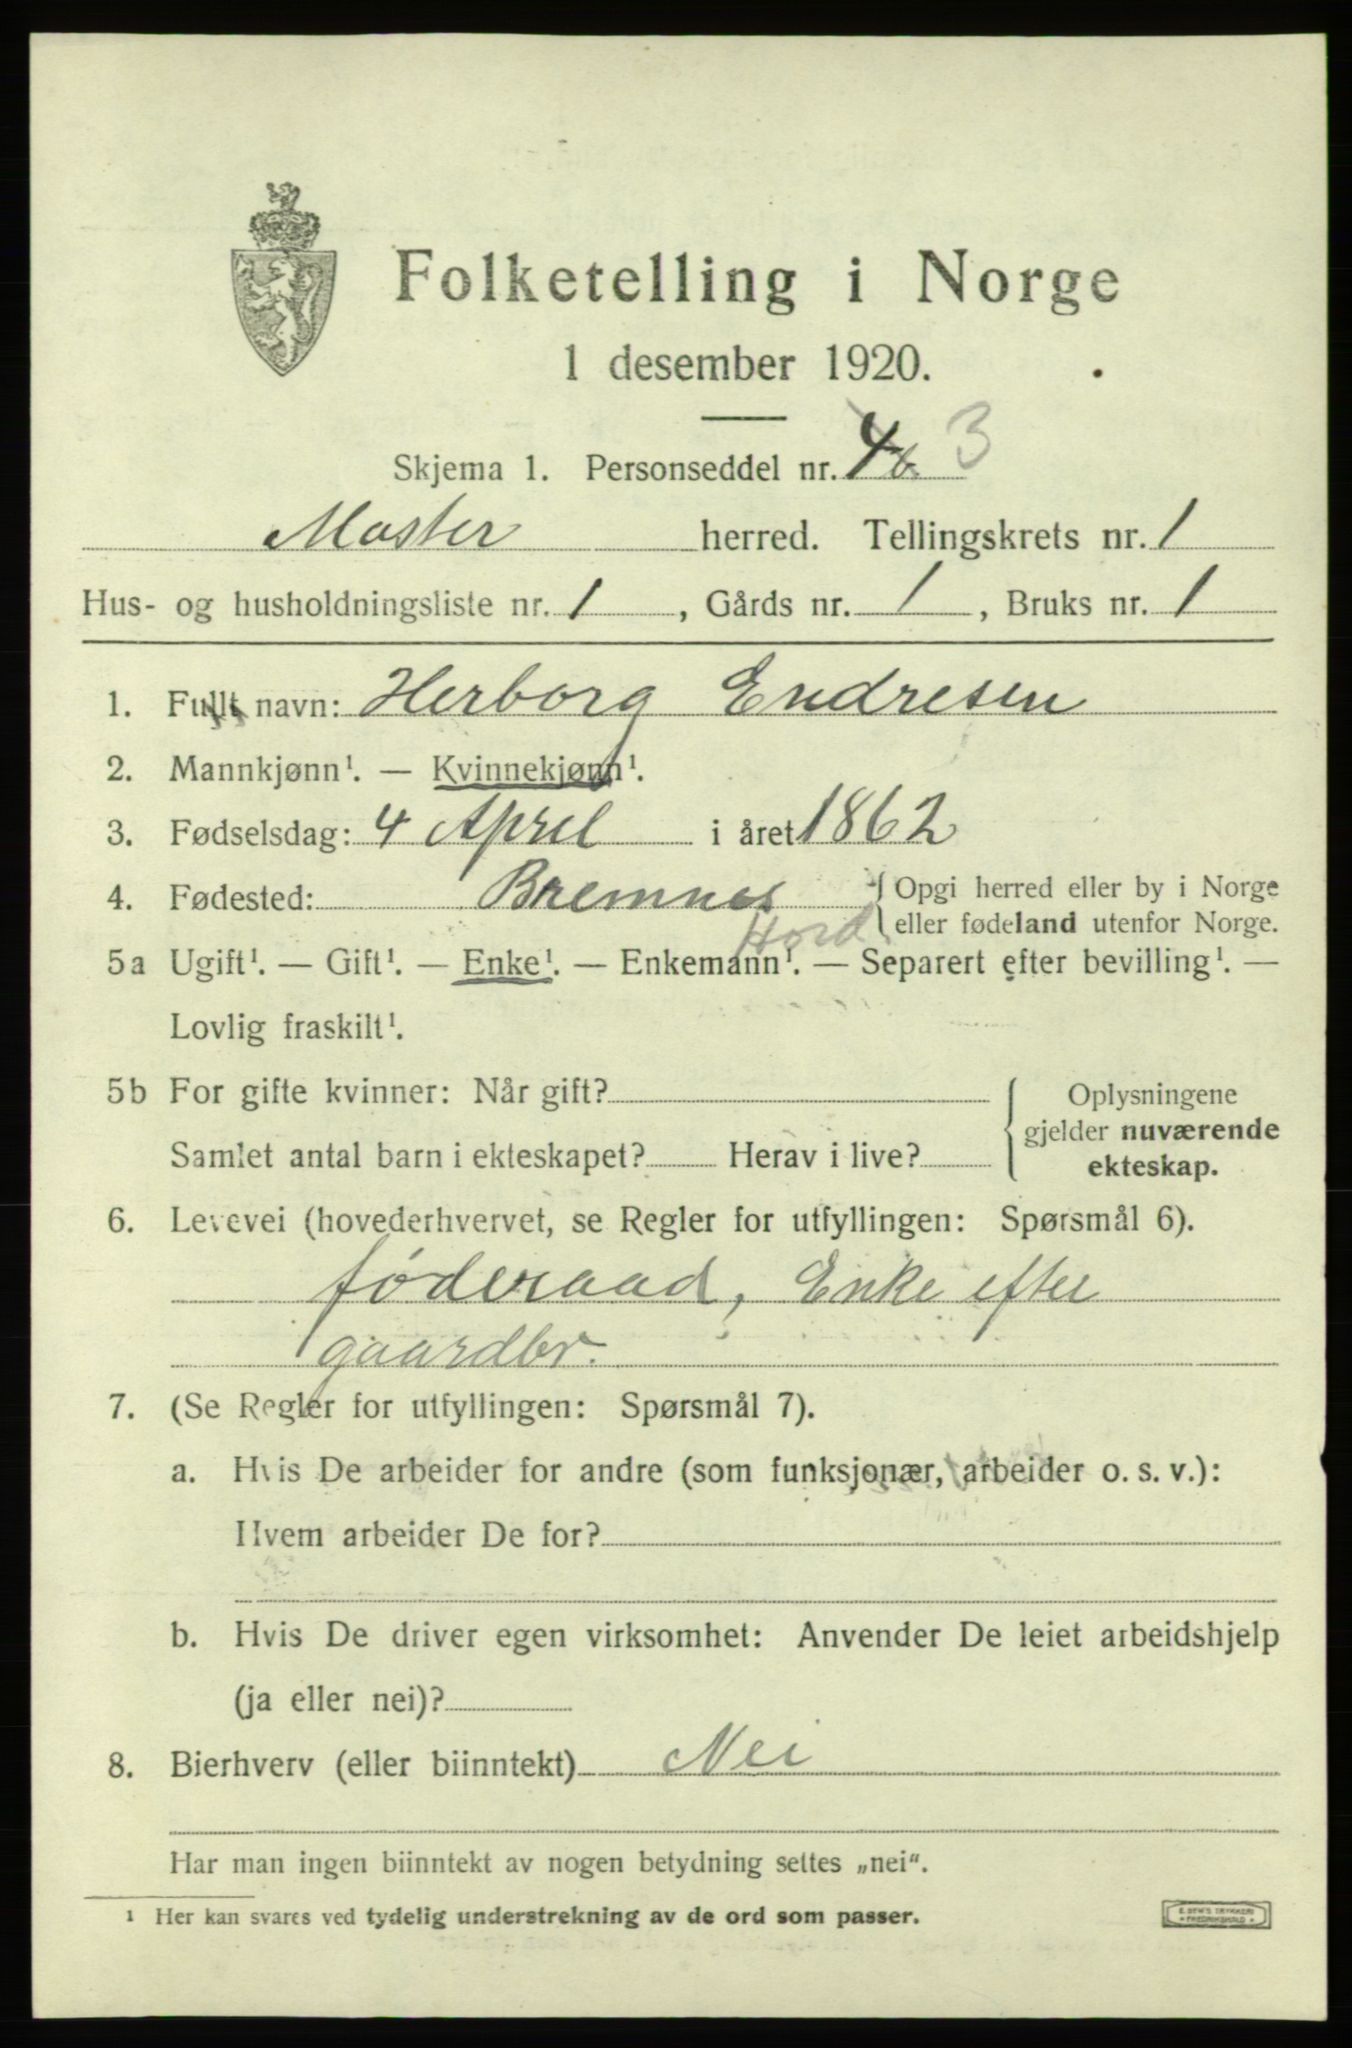 Folketelling i Norge
1 desember 1920.
Skjema 1. Personseddel nr. 4 3
Moster herred. Tellingskrets nr. 1
Hus- og husholdningsliste nr. 1, Gårds nr. 1, Bruks nr. 1
1. Fullt navn: Herborg Endresen
2. Mannkjønn¹. — Kvinnekjønn¹.
3. Fødselsdag: 4 Aprel i året 1862
4. Fødested: Bremnes { Opgi herred eller by i Norge
Hord. eller fødeland utenfor Norge.
5a Ugift¹. — Gift¹. — Enke¹. — Enkemann¹. — Separert efter bevilling¹. —
Lovlig fraskilt¹.
5b For gifte kvinner: Når gift? { Oplysningene
gjelder nuværende
Samlet antal barn i ekteskapet? Herav i live? ekteskap.
6. Levevei (hovederhvervet, se Regler for utfyllingen: Spørsmål 6).
føderaad, Enke efter
gaardbr.
7. (Se Regler for utfyllingen: Spørsmål 7).
a. Hvis De arbeider for andre (som funksjonær, arbeider o. s. v.):
Hvem arbeider De for?
b. Hvis De driver egen virksomhet: Anvender De leiet arbeidshjelp
(ja eller nei)?
8. Bierhverv (eller biinntekt) Nei
Har man ingen biinntekt av nogen betydning settes „nei“.
¹ Her kan svares ved tydelig understrekning av de ord som passer.